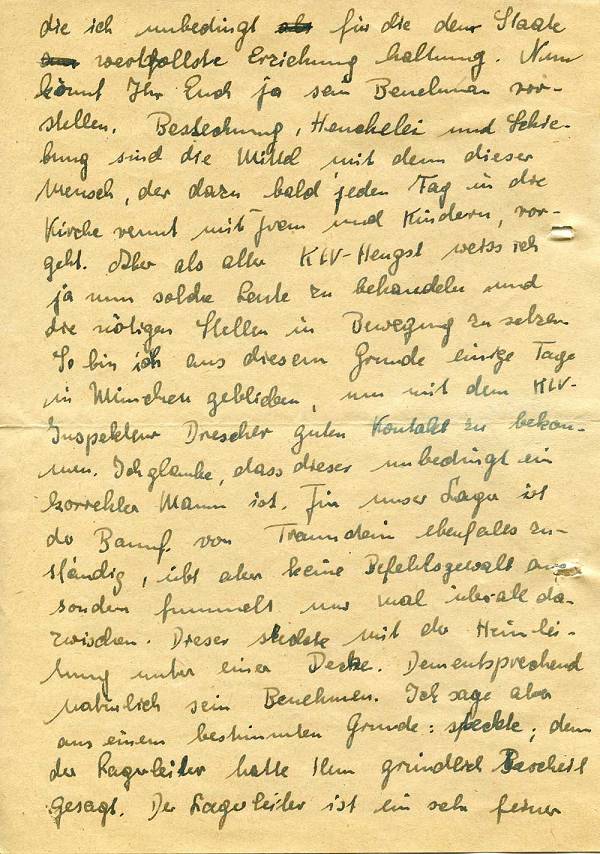 die ich unbedingt als für die dem Staate
wertvollste Erziehung haltung. Nun
könnt Ihr Euch ja sein Benehmen vor-
stellen. Bestechung, Heuchelei und Schie-
bung sind die Mittel mit denen dieser
Mensch, der dazu bald jeden Tag in die
Kirche rennt mit Frau und Kindern, vor-
geht. Aber als alter KLV-Hengst weiss ich
ja nun solche Leute zu behandeln und
die nötigen Stellen in Bewegung zu setzen
So bin ich aus diesem Grunde einige Tage
in München geblieben, um mit dem KLV-
Inspekteur Drescher guten Kontakt zu bekom-
men. Ich glaube, dass dieser unbedingt ein
korrekter Mann ist. Für unser Lager ist
der Bannf. von Traunstein ebenfalls zu-
ständig, übt aber keine Befehlsgewalt aus
sondern fummelt nur mal überall da-
zwischen. Dieser steckte mit der Heimlei-
tung unter einer Decke. Dementsprechend
natürlich sein Benehmen. Ich sage aber
aus einem bestimmten Grunde: steckte; denn
der Lagerleiter hatte ihm gründlich Bescheid
gesagt. Der Lagerleiter ist ein sehr feiner